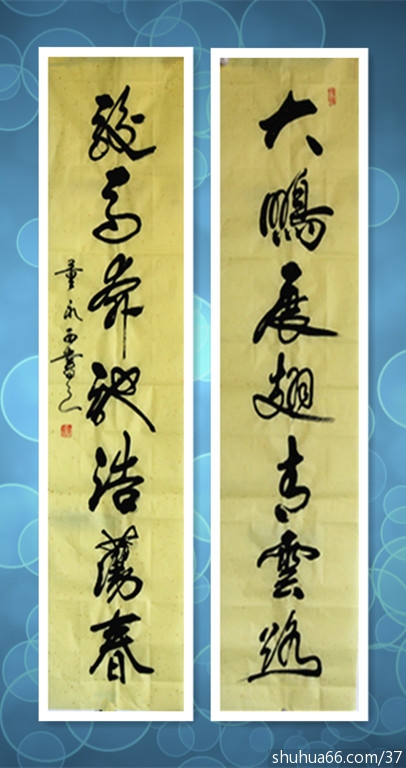 大鵬展翅青雲路
駿馬奔馳浩蕩春
董永西書之
shuhua66.com/37